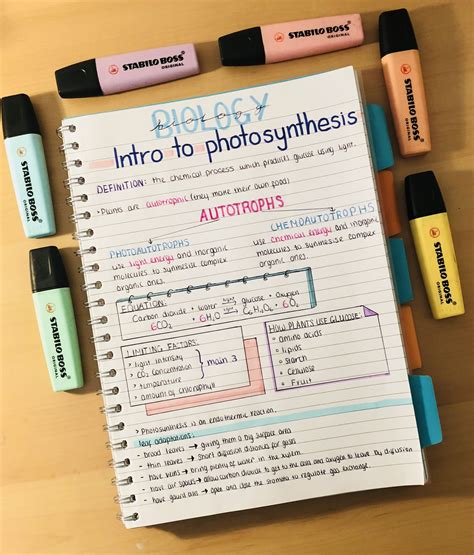 STABILO BOSS
ORIGINAL
STABILO BOSS
ORIGINAL
STABILO BOSS
ORIGINAL
STABILO BOSS
ORIGINAL
STABILO BOSS
ORIGINAL
STABILO BOSS
ORIGINAL
STABILO BOSS
ORIGINAL
BIOLOGY
biology
Intro to photosynthesis
DEFINITION: the chemical process which produces glucose using light.
• Plants are autotrophic (they make their own food)
AUTOTROPHS
PHOTOAUTOTROPHS
use light energy and inorganic
molecules to synthesise complex
organic ones.
CHEMOAUTOTROPHS
use chemical energy and inorganic
molecules to synthesise complex
organic ones.
EQUATION:
Carbon dioxide + water → glucose + Oxygen
6CO2 + 6H2O → C6H12O6 + 6O2
LIMITING FACTORS:
• light intensity
• CO2 concentration
• temperature
• amount of chlorophyll
main 3
HOW PLANTS USE GLUCOSE:
• amino acids
• lipids
• starch
• Cellulose
• Fruit
• Photosynthesis is an endothermic reaction.
leaf adaptations:
- broad leaves → giving them a big surface area
- thin leaves → short diffusion distances for gases
- have veins → bring plenty of water in the xylem
- have air spaces → allow carbon dioxide to get to the cells and oxygen to leave by diffusion
- have guard cells → open and close the stomata to regulate gas exchange.